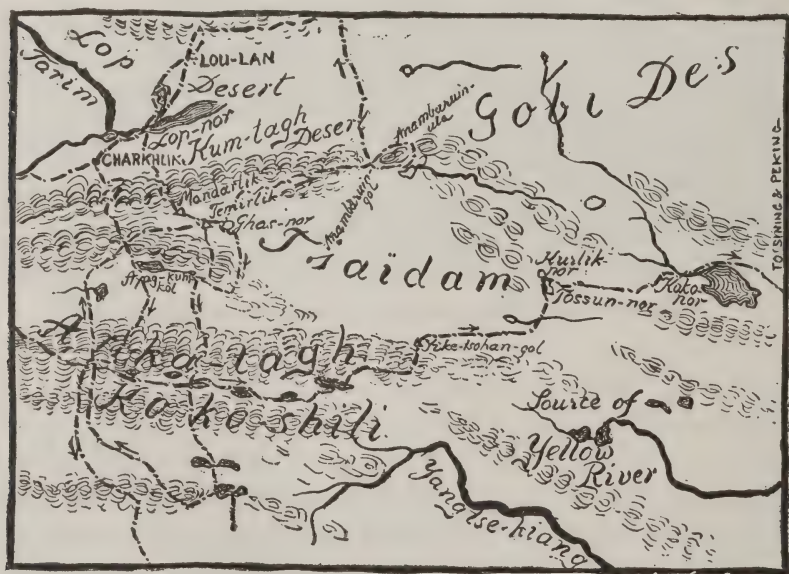 Lop
Tarim
LOU-LAN
Desert
Lop-nor
Kum-tagh
Desert
CHARKHLIK
Anambaruin-
ula
Gobi Des
Mandarlik
Temirlik
Ghas-nor
Anambaruin-
gol
Tsaïdam
Kurlik-
nor
Tossun-nor
Koko-
nor
TO TSINING & PEKING
Arka-tagh
Koko-shili
Source of
Yellow
River
Yangtse-kiang